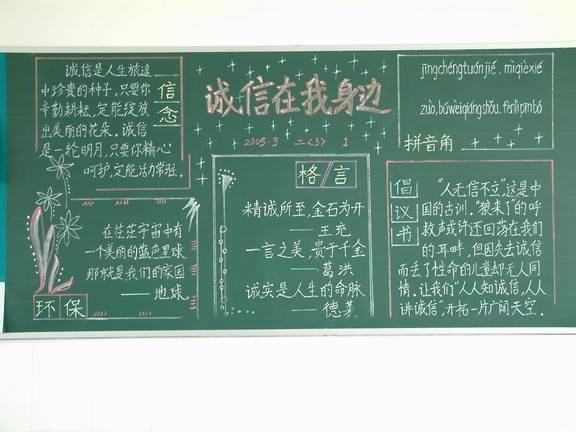 诚信在我身边
2005.3 二<3> 1
诚信是人生旅途
中珍贵的种子,只要你
辛勤耕耘,定能绽放
出美丽的花朵。诚信
是一轮明月,只要你精心
呵护,定能活力常驻。
信念
在茫茫宇宙中有
一个美丽的蓝色星球
那就是我们的家园
——地球。
环保
格言
精诚所至,金石为开
——王充
一言之美,贵于千金
——葛洪
诚实是人生的命脉
——德莱
jīngchéngtuánjié, mìqièxié
拼音角
倡议书
“人无信不立”,这是中
国的古训。“狼来了”的呼
救声或许还回荡在我们
的耳畔,但因失去诚信
而丢了性命的儿童却无人同
情。让我们“人人知诚信,人人
讲诚信”,开拓一片广阔天空。